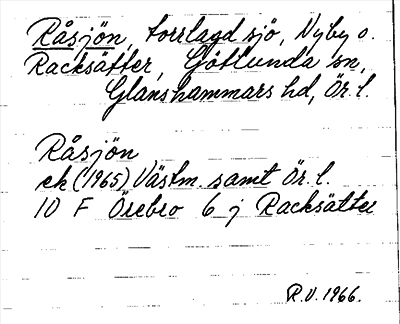 Råsjön, torrlagd sjö, Nyby o.
Racksätter, Götlunda sn,
Glanshammars hd, Ör. l.
Råsjön
ek (1965) Västm. samt Ör. l.
10 F Örebro 6 j Racksätter
R.V. 1966.